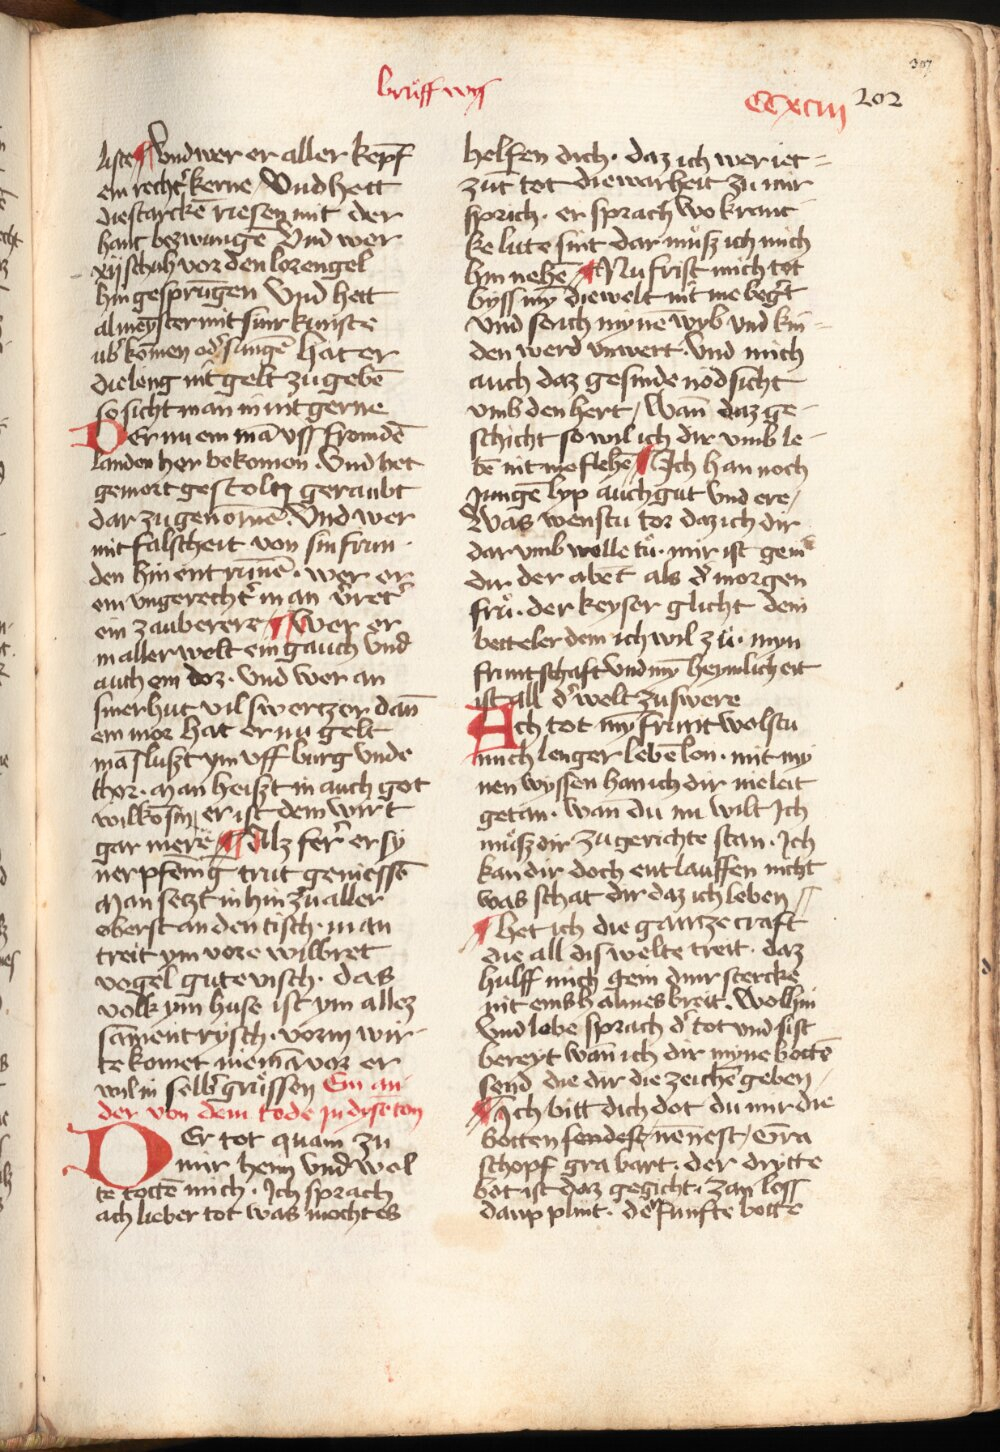 307
brůff wyß
CCxciii 202
liste ¶ Vnd wer er aller kepf
ein recht' kerne / Vnd hett
die starckē riesen mit der
hant bezwungē Vnd wer
xij schuh vor den lorengel
hin gesprūgen Vnd hett
al meyster mit sinr kunste
ub' komen od' singē hat er
die leng nit gelt zu gebē
so sicht man in nit gerne
Der nu ein mā uss fromdē
landen her bekomen . Vnd het
gemort gestoln geraubt
dar zu genomē . Vnd wer
mit falscheit von sin frun-
den hin entrunē . wer er
ein ungerecht' man v'ret'
ein zauberere ¶ Wer er
in aller welt ein gauch und
auch ein doz . und wer an
siner hut vil swertzer dan̄
ein mor hat er nu gelt
mā slußt ym uff burg unde
thor . man heißt in auch got
wilkōsin er ist dem wirt
gar mere ¶ Alz fer' er sy
ner pfenig trut geniessē
Man setzt in hin zu aller
oberst an den tisch . man
treit ym vore wilbret
vogel gute visch . das
volk ym huse ist ym allez
samēt rysch . vorm wir-
te komet niemā vor er
wil in selb' grůssen Ein an
der von dem tode in dyse ton
Der tot quam zu
mir heim und wol
te totē mich . Ich sprach
ach lieber tot was mochtes
helfen dich . daz ich wer iet=
zūt tot die warheit zu mir
sprich . er sprach wo kranc-
ke lute sint dar můsz ich mich
hin nehē ¶ Nu frist mich tot
byss my die welt nit me beg't
und serch mynē wyb und kin=
den werd unwert . und mich
auch daz gesinde nod sicht
umb den hert / wan̄ daz ge-
schicht so wil ich dir umb le-
bē nit me flehē ¶ Ich han noch
Jungē lyp auch gut und ere /
Was wenstu tor daz ich dir
dar umb wolle tů . mir ist gem
dir der abēt als d' morgen
frů . der keyser glicht dem
betteler dem ich wil zů . myn
fruntschaft und my heymlicheit
ist all d' welt zu swere
Ach tot my frunt wolstu
mich lenger lebē lon . mit my
nen wyssen han ich dir nie leit
getan . wan̄ du nu wilt Ich
můsz dir zu gerichte stan . Ich
kan dir doch entlauffen nicht
was schat dir daz ich leben //
¶ het ich die gantze craft
die all dis welte treit . daz
hulff mich gein dinr stercke
nit eins halmes breit . Wolhin
Vnd lebe sprach d' tot und sist
bereyt wan̄ ich dir myne bottē
send die dir die zeichē geben /
¶ Ich bitt dich dot du mir die
botten sendest / nēnest / Gra
schopf gra bart . der drytte
bot ist daz gegicht . zan loss
daup plint . de' funfte botte